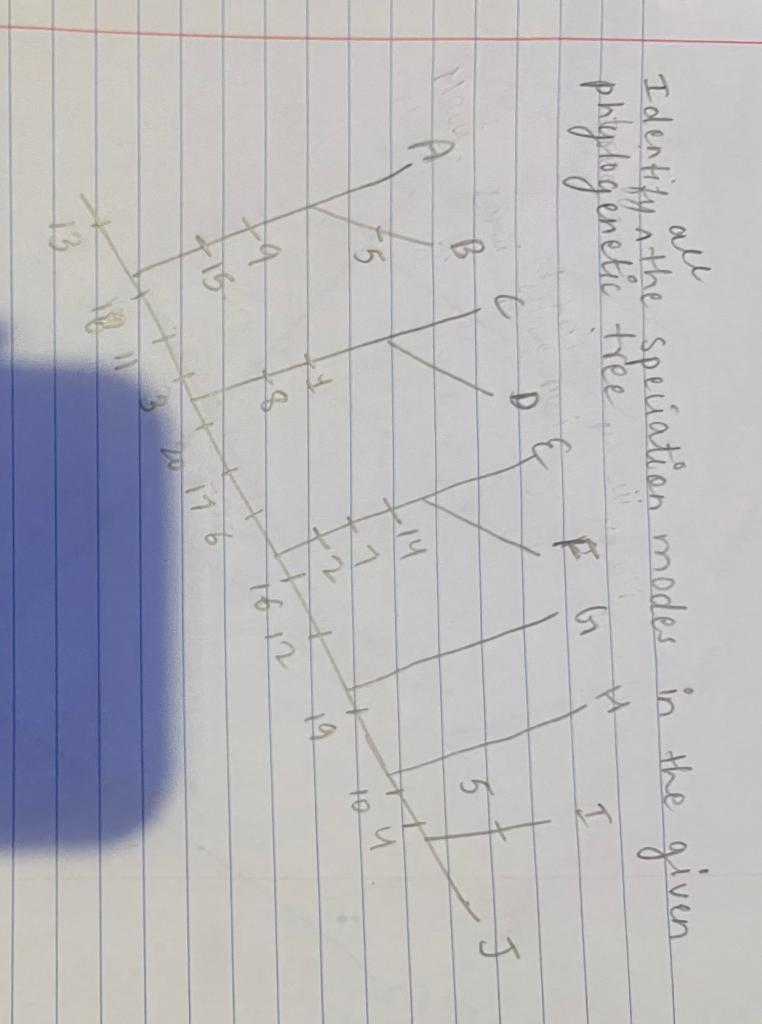 Identify ^ all the speciation modes in the given
phylogenetic tree
A B C D E F G H I J
5
9
15
1
8
14
7
2
5
13 18 11 3 20 17 6 16 12 19 10 4